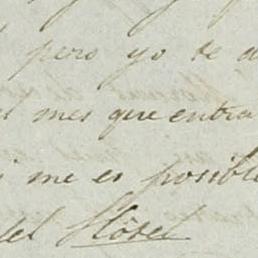 pero yo te
mes que entra
me es posible
del Hôtel